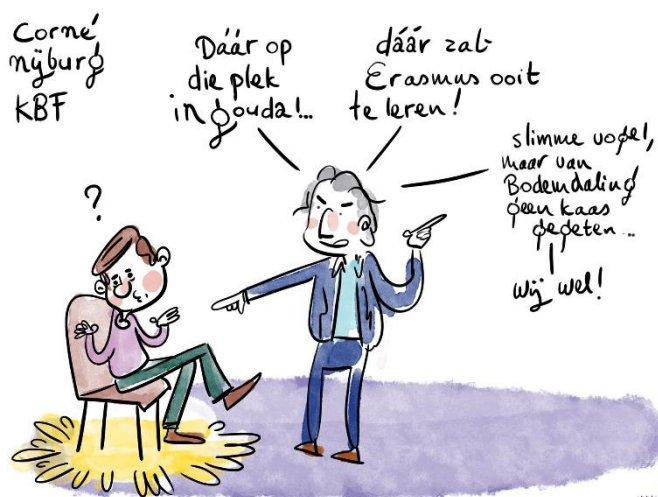 Corné
nijburg
KBF
Dáár op
die plek
in gouda!...
dáár zat
Erasmus ooit
te leren!
slimme vogel,
maar van
Bodemdaling
geen kaas
gegeten...
wij wel!
?